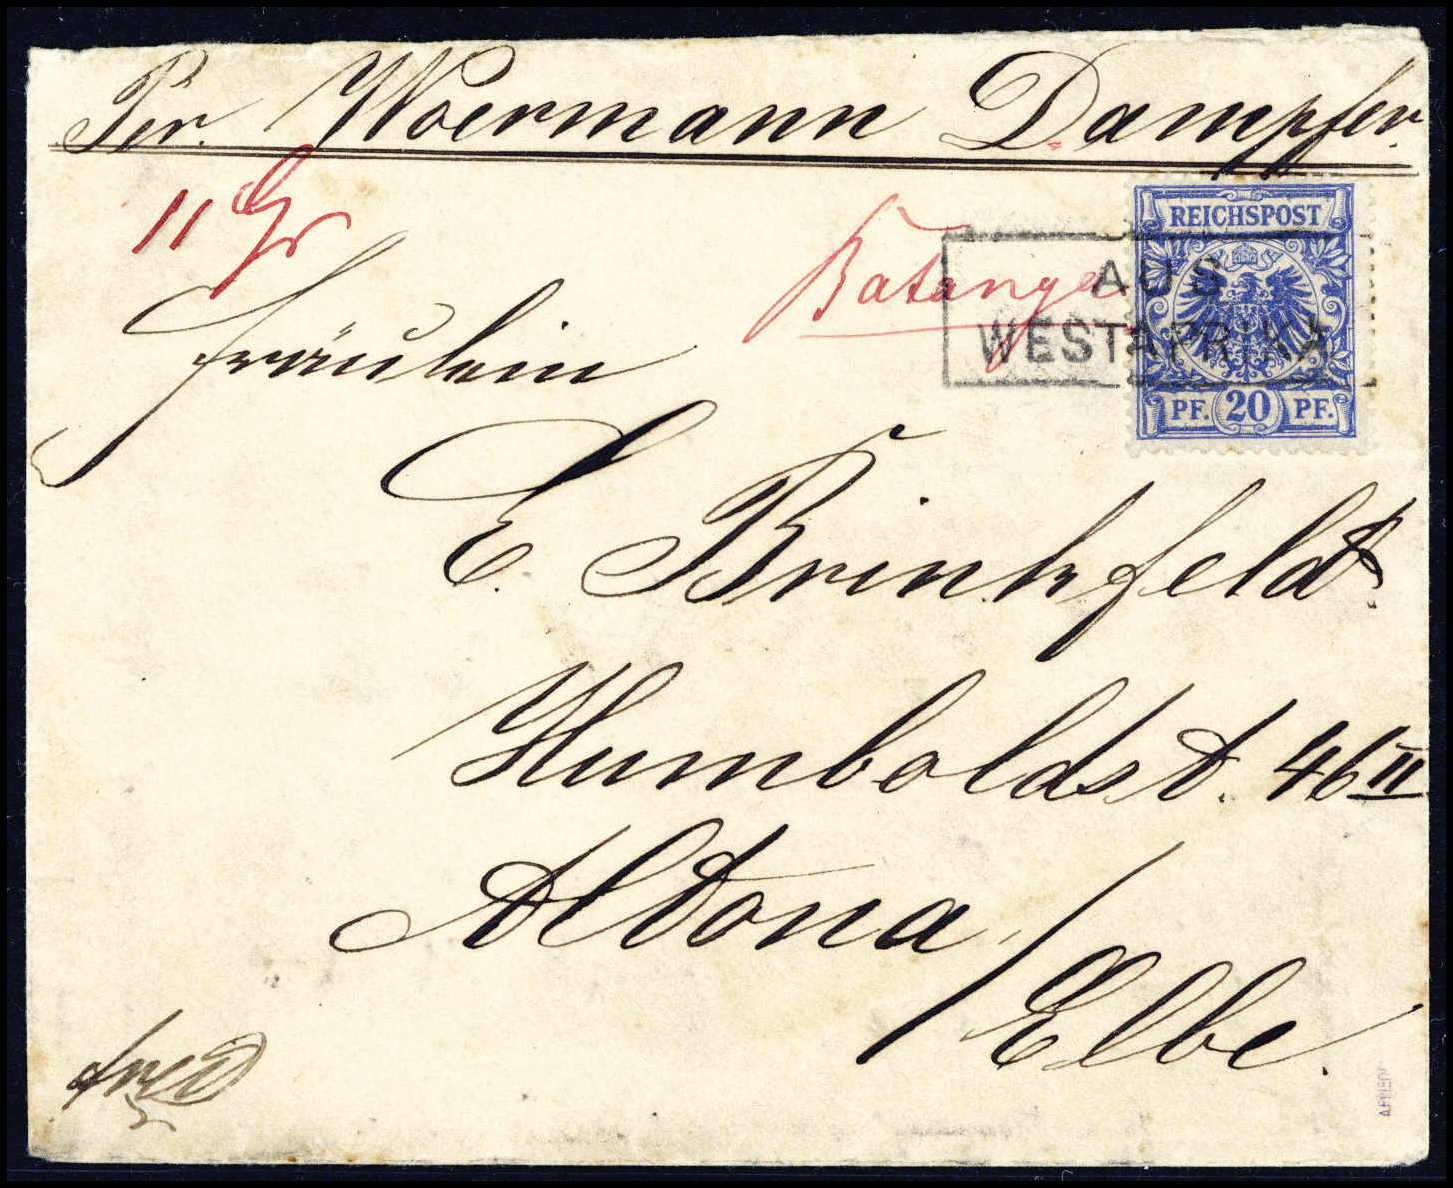 Per. Woermann Dampfer.
11 Gr
Batanga
REICHSPOST
AUS
WESTAFRIKA
PF. 20 PF.
Fräulein
E. Brinkfeldt.
Humboldst. 46 II
Altona /
Elbe.